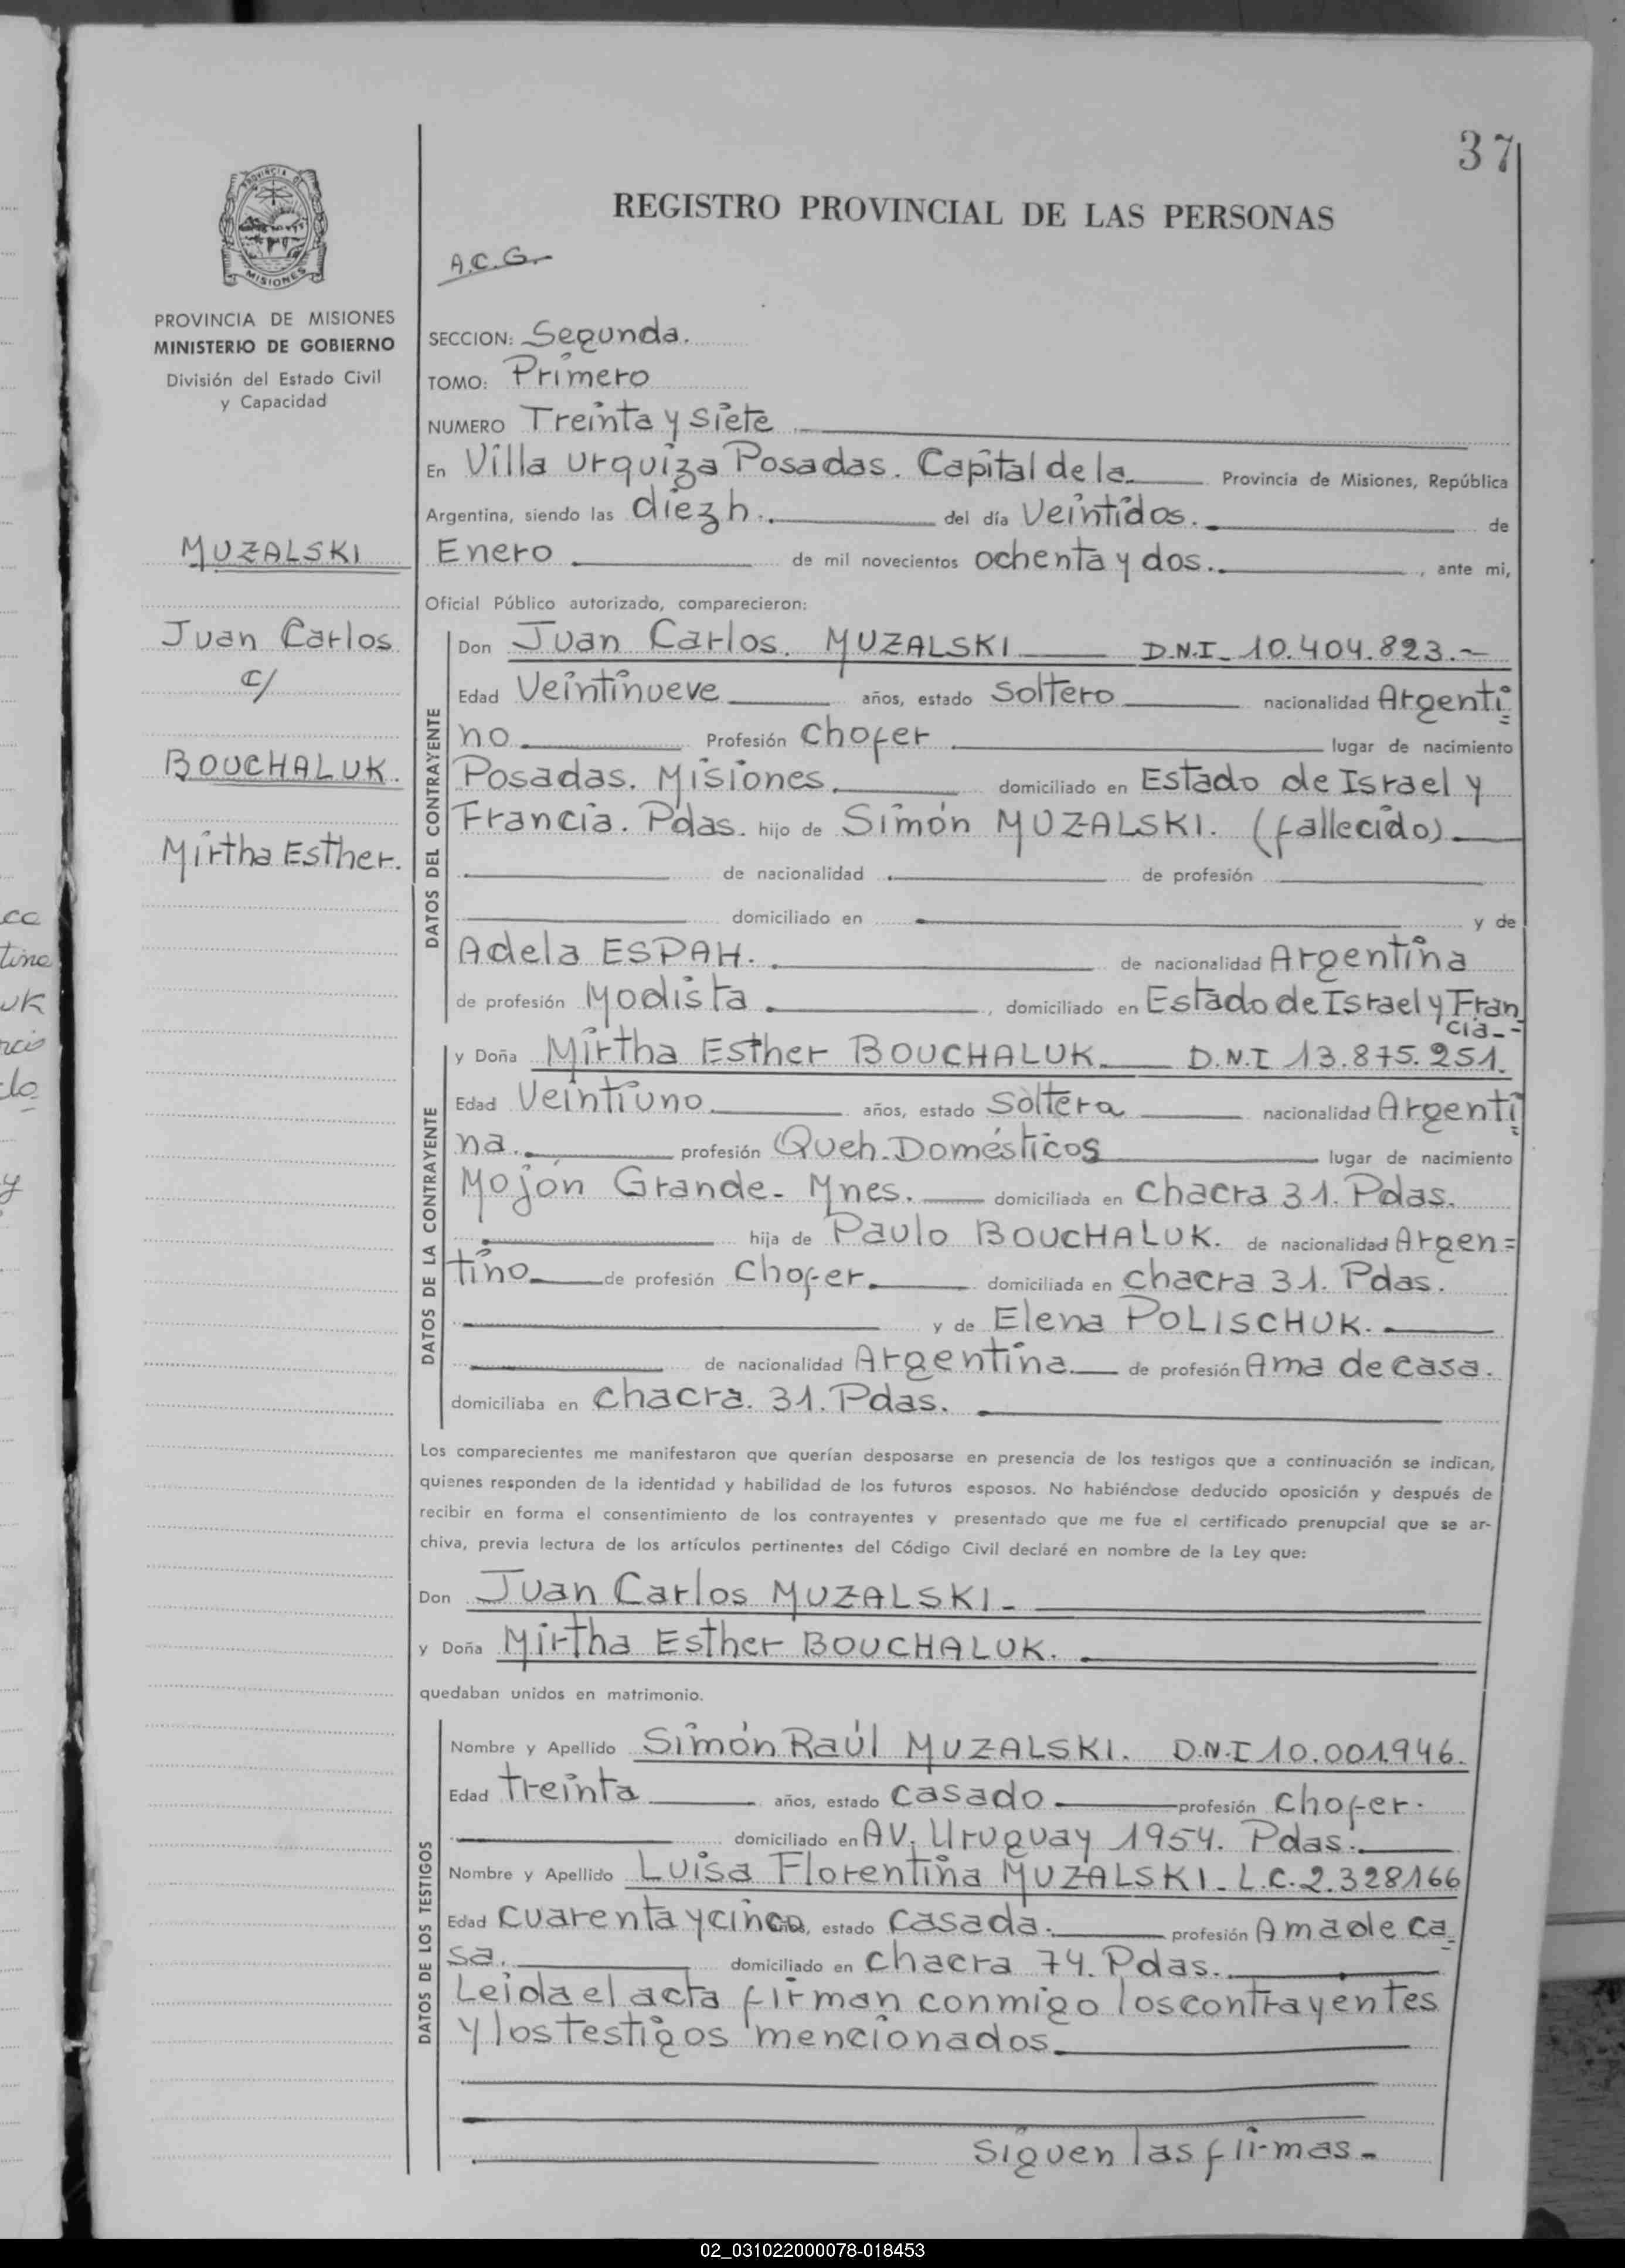 37
REGISTRO PROVINCIAL DE LAS PERSONAS
A.C.G.
PROVINCIA DE MISIONES
MINISTERIO DE GOBIERNO
División del Estado Civil
y Capacidad
MUZALSKI
Juan Carlos
c/
BOUCHALUK.
Mirtha Esther.
SECCION: Segunda.
TOMO: Primero
NUMERO Treinta y siete
En Villa Urquiza Posadas. Capital de la Provincia de Misiones, República
Argentina, siendo las diez h. del día Veintidos. de
Enero de mil novecientos ochenta y dos. , ante mi,
Oficial Público autorizado, comparecieron:
DATOS DEL CONTRAYENTE
Don Juan Carlos. MUZALSKI D.N.I_ 10.404.823.-
Edad Veintinueve años, estado Soltero nacionalidad Argenti=
no Profesión Chofer lugar de nacimiento
Posadas. Misiones. domiciliado en Estado de Israel y
Francia. Pdas. hijo de Simón MUZALSKI. (fallecido)
de nacionalidad de profesión
domiciliado en y de
Adela ESPAH. de nacionalidad Argentina
de profesión Modista , domiciliado en Estado de Israel y Fran
cia_=
DATOS DE LA CONTRAYENTE
y Doña Mirtha Esther BOUCHALUK D.N.I 13.875.251.
Edad Veintiuno años, estado Soltera nacionalidad Argenti=
na. profesión Queh. Domésticos lugar de nacimiento
Mojón Grande- Mnes. domiciliada en Chacra 31. Pdas.
hija de Paulo BOUCHALUK. de nacionalidad Argen=
tino de profesión Chofer domiciliada en Chacra 31. Pdas.
y de Elena POLISCHUK.
de nacionalidad Argentina de profesión Ama de casa.
domiciliaba en Chacra. 31. Pdas.
Los comparecientes me manifestaron que querían desposarse en presencia de los testigos que a continuación se indican,
quienes responden de la identidad y habilidad de los futuros esposos. No habiéndose deducido oposición y después de
recibir en forma el consentimiento de los contrayentes y presentado que me fue el certificado prenupcial que se ar-
chiva, previa lectura de los artículos pertinentes del Código Civil declaré en nombre de la Ley que:
Don Juan Carlos MUZALSKI_
y Doña Mirtha Esther BOUCHALUK.
quedaban unidos en matrimonio.
DATOS DE LOS TESTIGOS
Nombre y Apellido Simón Raúl MUZALSKI. D.N.I 10.001.946.
Edad treinta años, estado Casado profesión Chofer.
domiciliado en AV. Uruguay 1954. Pdas.
Nombre y Apellido Luisa Florentina MUZALSKI_ L.C. 2.328166
Edad Cuarenta y cinco años, estado Casada. profesión Ama de ca=
sa. domiciliado en Chacra 74. Pdas.
Leida el acta firman conmigo los contrayentes
y los testigos mencionados
Siguen las firmas-
02_031022000078-018453